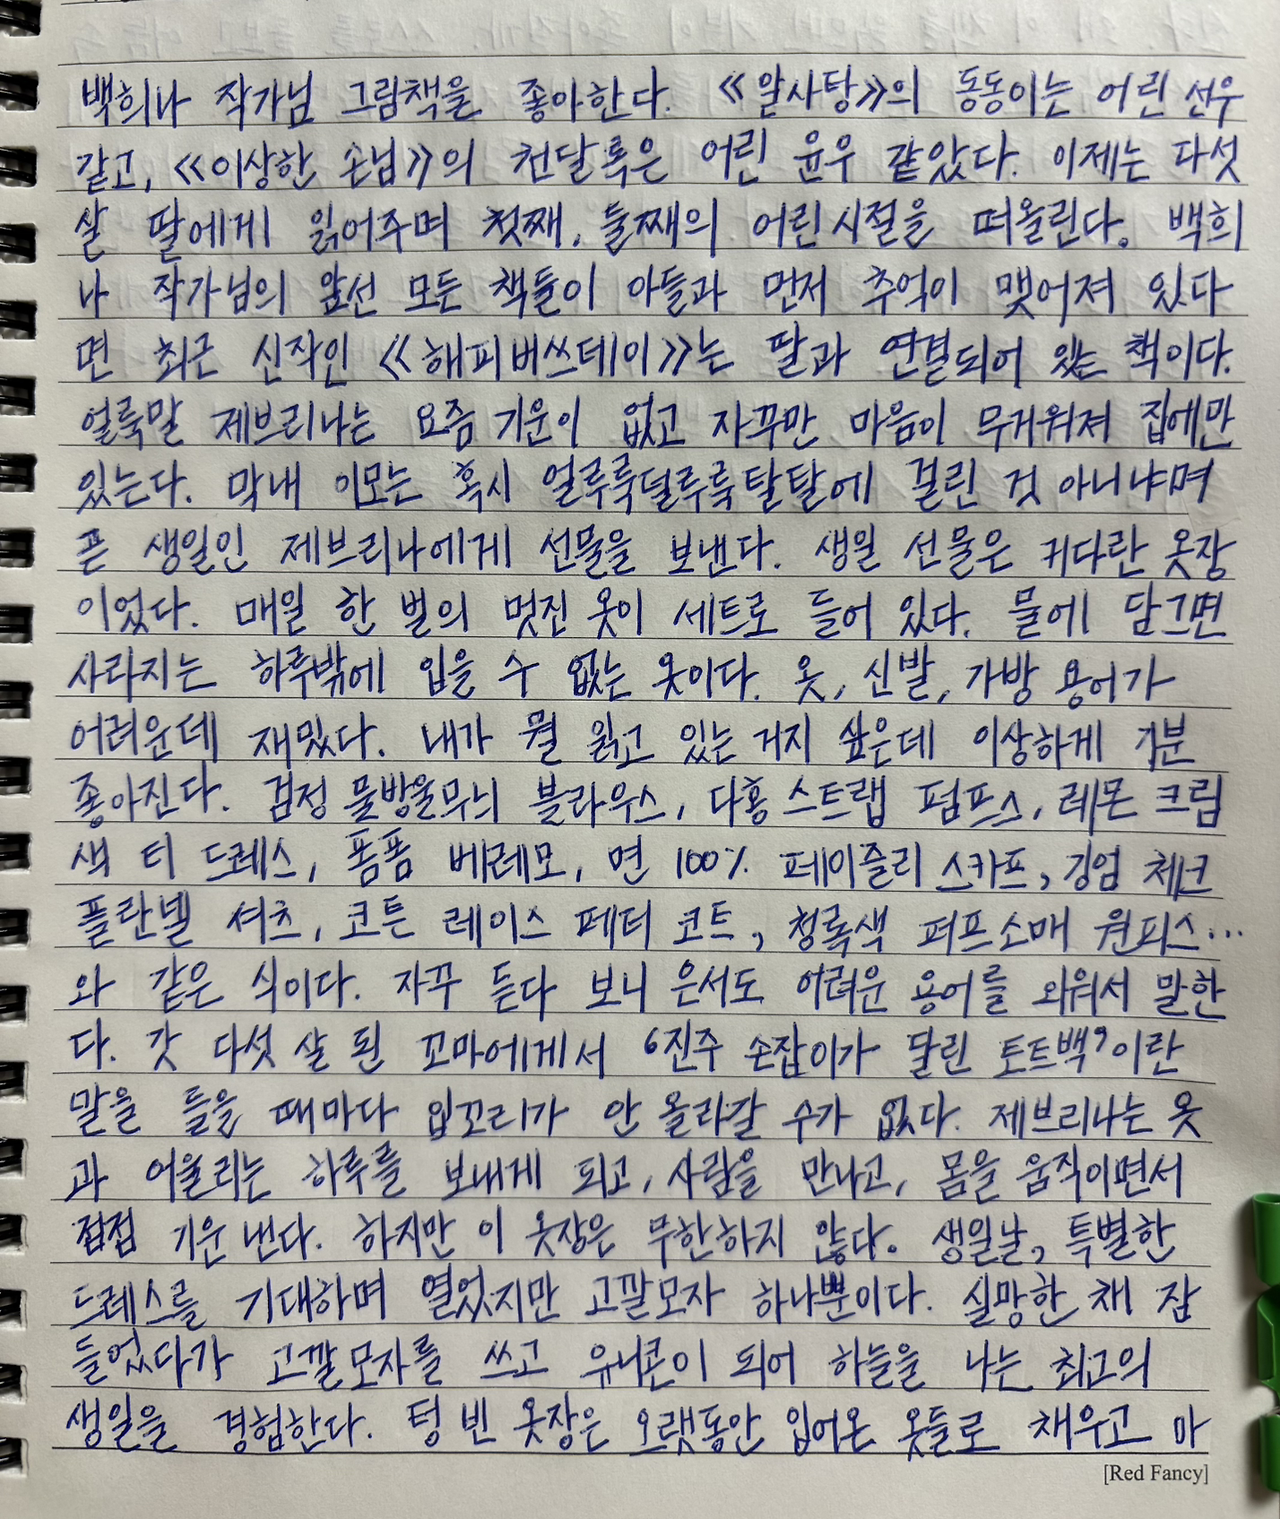 백희나 작가님 그림책을 좋아한다. 《알사탕》의 동동이는 어린 선우
같고, 《이상한 손님》의 천달록은 어린 윤우 같았다. 이제는 다섯
살 딸에게 읽어주며 첫째, 둘째의 어린시절을 떠올린다. 백희
나 작가님의 앞선 모든 책들이 아들과 먼저 추억이 맺어져 있다
면 최근 신작인 《해피버쓰데이》는 딸과 연결되어 있는 책이다.
얼룩말 제브리나는 요즘 기운이 없고 자꾸만 마음이 무거워져 집에만
있는다. 막내 이모는 혹시 얼루룩덜루룩탈탈에 걸린 것 아니냐며
곧 생일인 제브리나에게 선물을 보낸다. 생일 선물은 커다란 옷장
이었다. 매일 한 벌의 멋진 옷이 세트로 들어 있다. 물에 담그면
사라지는 하루밖에 입을 수 없는 옷이다. 옷, 신발, 가방 용어가
어려운데 재밌다. 내가 뭘 읽고 있는 거지 싶은데 이상하게 기분
좋아진다. 검정 물방울무늬 블라우스, 다홍 스트랩 펌프스, 레몬 크림
색 티 드레스, 폼폼 베레모, 면 100% 페이즐리 스카프, 깅엄 체크
플란넬 셔츠, 코튼 레이스 페터 코트, 청록색 퍼프소매 원피스...
와 같은 식이다. 자꾸 듣다 보니 은서도 어려운 용어를 외워서 말한
다. 갓 다섯 살 된 꼬마에게서 '진주 손잡이가 달린 토트백'이란
말을 들을 때마다 입꼬리가 안 올라갈 수가 없다. 제브리나는 옷
과 어울리는 하루를 보내게 되고, 사람을 만나고, 몸을 움직이면서
점점 기운 낸다. 하지만 이 옷장은 무한하지 않다. 생일날, 특별한
드레스를 기대하며 열었지만 고깔모자 하나뿐이다. 실망한 채 잠
들었다가 고깔모자를 쓰고 유니콘이 되어 하늘을 나는 최고의
생일을 경험한다. 텅 빈 옷장은 오랫동안 입어온 옷들로 채우고 마
[Red Fancy]